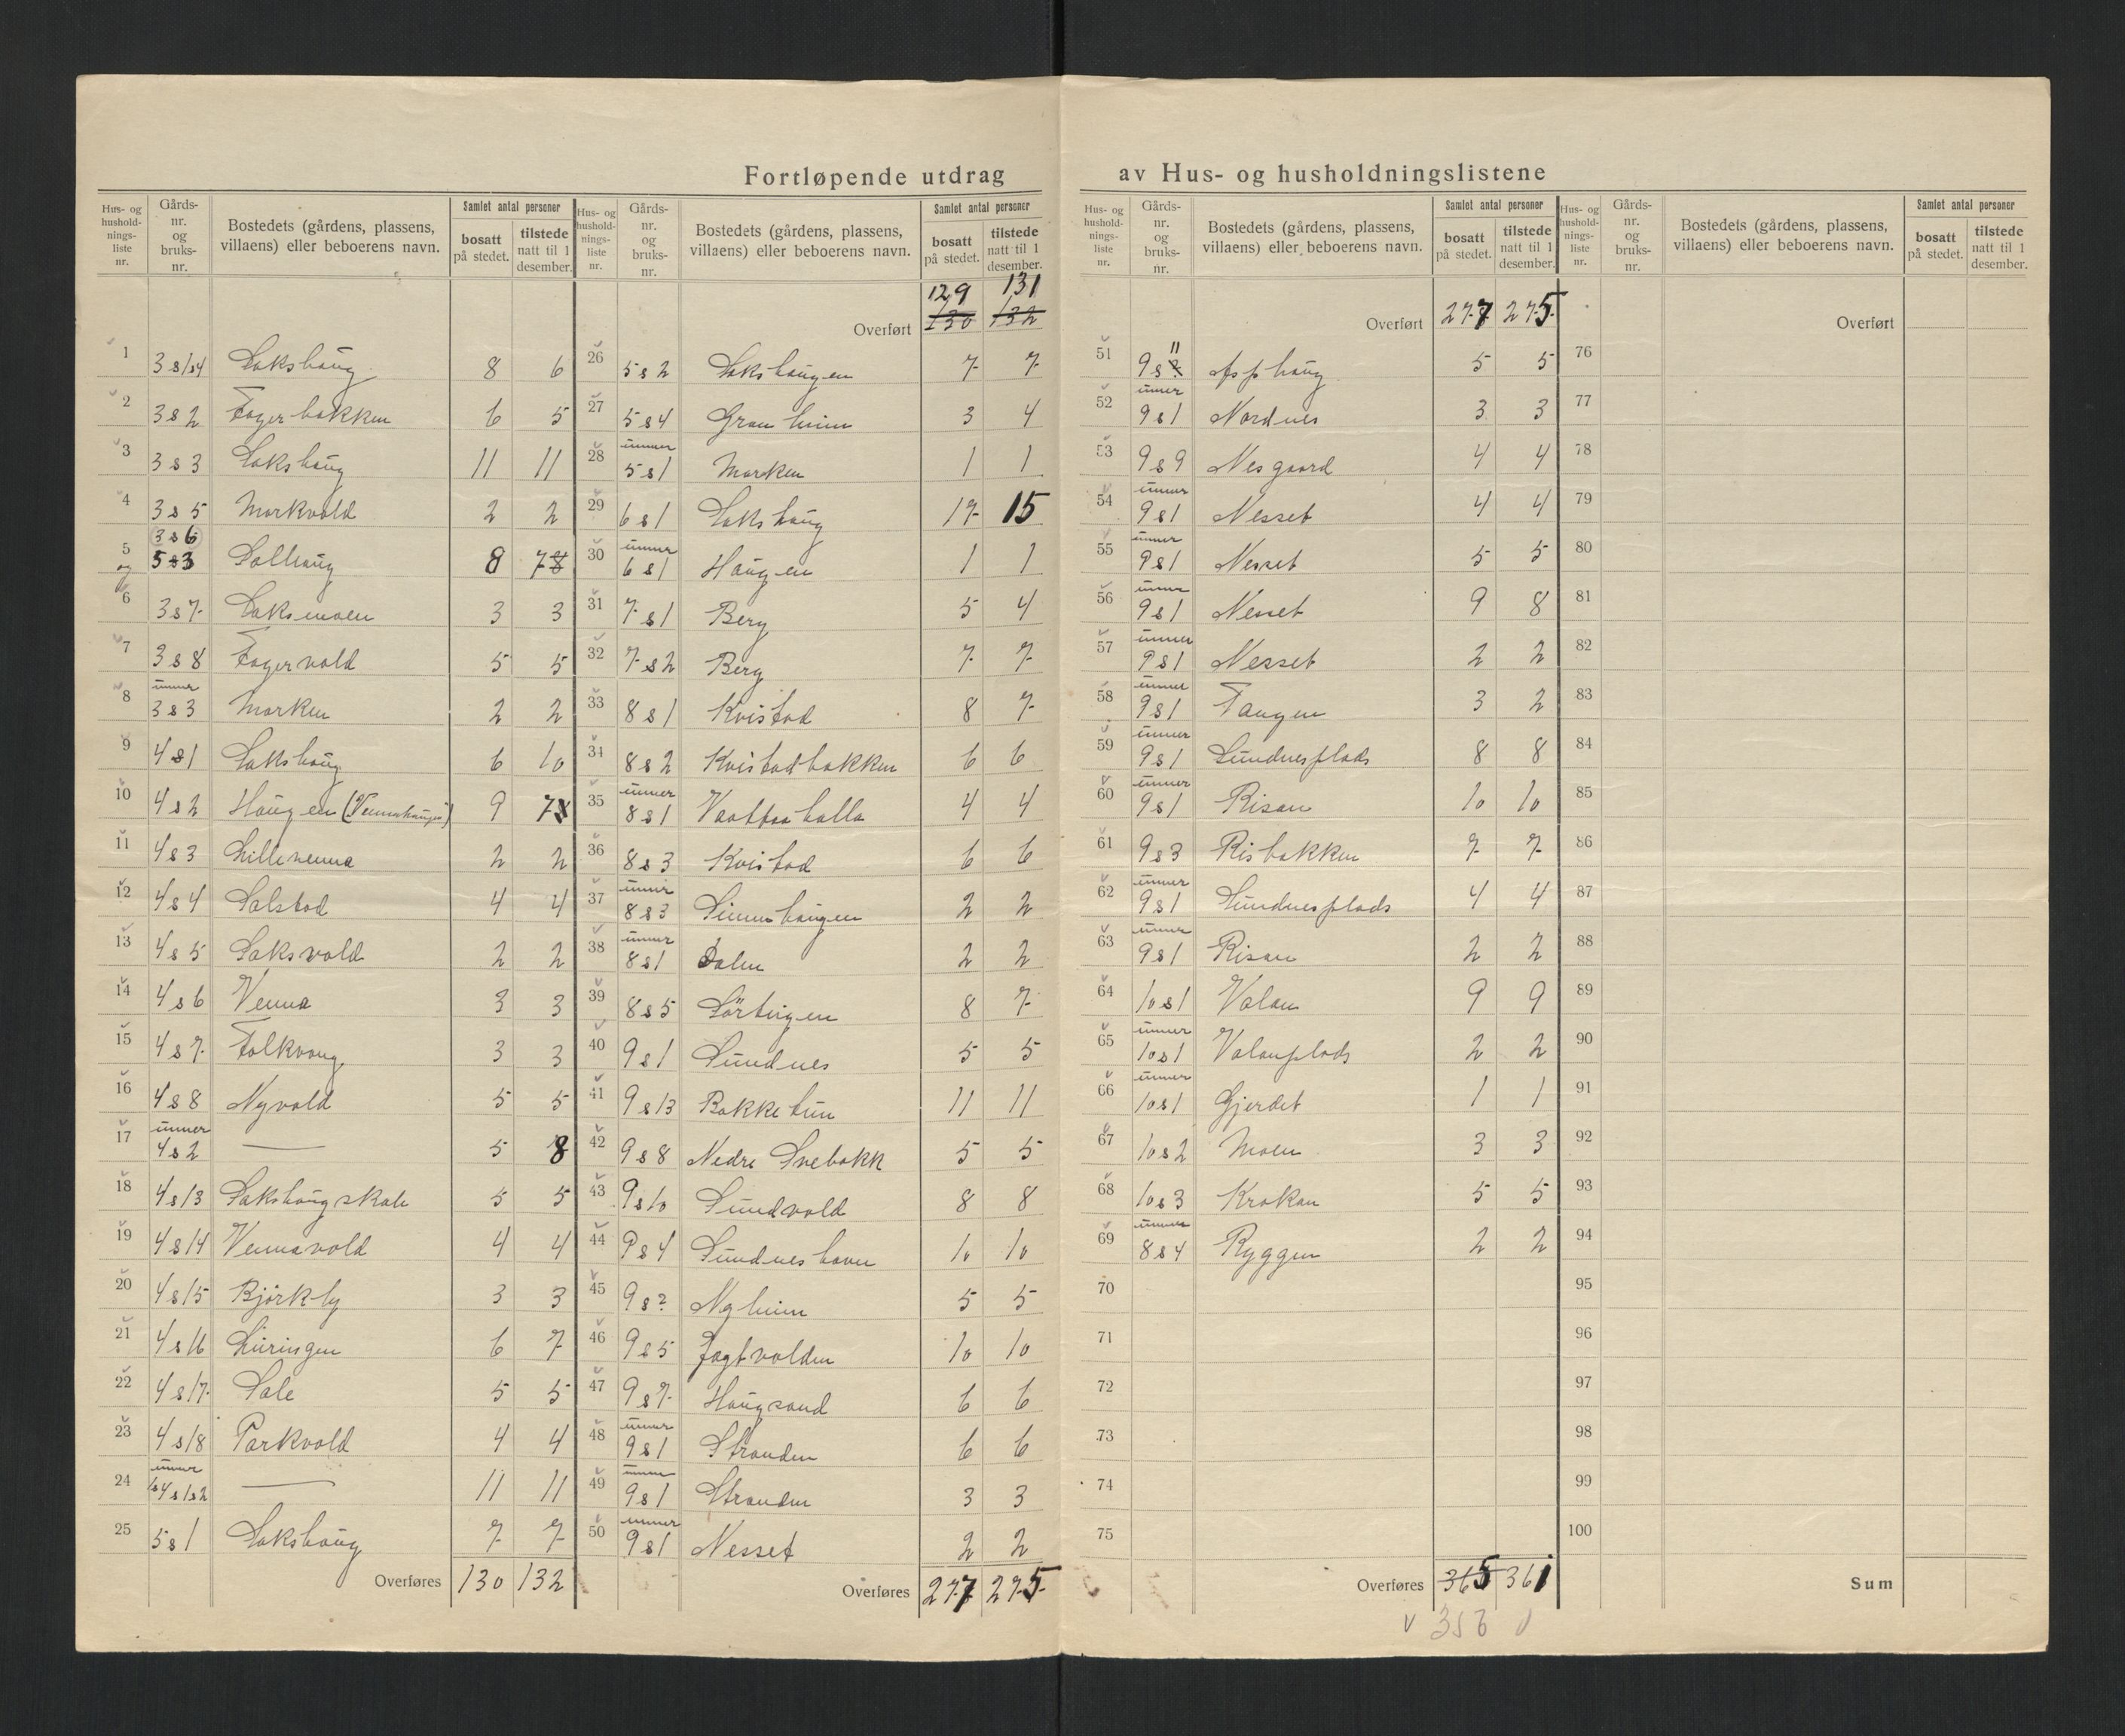 Fortløpende utdrag av Hus- og husholdningslistene
Hus- og hushold-nings-liste nr. Gårds-nr. og bruks-nr. Bostedets (gårdens, plassens, villaens) eller beboerens navn. Samlet antal personer bosatt på stedet. tilstede natt til 1 desember.
1 3 s 1,4 Sakshaug 8 6
2 3 s 2 Fagerbakken 6 5
3 3 s 3 Sakshaug 11 11
4 3 s 5 Markvold 2 2
3 s 6
5 og 5 s 3 Solhaug 8 7 8
6 3 s 7 Saksmoen 3 3
7 3 s 8 Fagervold 5 5
8 unner 3 s 3 Marken 2 2
9 4 s 1 Sakshaug 6 10
10 4 s 2 Haugen (Vennahaugen) 9 7
11 4 s 3 Lillevenna 2 2
12 4 s 4 Salstad 4 4
13 4 s 5 Saksvold 2 2
14 4 s 6 Venna 3 3
15 4 s 7 Folkvang 3 3
16 4 s 8 Nyvold 5 5
17 unner 4 s 2 — 5 8
18 4 s 13 Sakshaug skole 5 5
19 4 s 14 Vennavold 4 4
20 4 s 15 Bjørkly 3 3
21 4 s 16 Luringen 6 7
22 4 s 17 Sale 5 5
23 4 s 18 Parkvold 4 4
24 unner 4 s 1 s 2 — 11 11
25 5 s 1 Sakshaug 7 7
Overføres 130 132
Hus- og hushold-nings-liste nr. Gårds-nr. og bruks-nr. Bostedets (gårdens, plassens, villaens) eller beboerens navn. Samlet antal personer bosatt på stedet. tilstede natt til 1 desember.
129 131
Overført 130 132
26 5 s 2 Sakshaugen 7 7
27 5 s 4 Granheim 3 4
28 unner 5 s 1 Marken 1 1
29 6 s 1 Sakshaug 17 15
30 unner 6 s 1 Haugen 1 1
31 7 s 1 Berg 5 4
32 7 s 2 Berg 7 7
33 8 s 1 Kvistad 8 7
34 8 s 2 Kvistadbakken 6 6
35 unner 8 s 1 Vaattahalla 4 4
36 8 s 3 Kvistad 6 6
37 unner 8 s 3 Simmhaugen 2 2
38 unner 8 s 1 Dalen 2 2
39 8 s 5 Sørtugen 8 7
40 9 s 1 Sundnes 5 5
41 9 s 13 Bakketun 11 11
42 9 s 8 Nedre Snebakk 5 5
43 9 s 10 Sundvold 8 8
44 9 s 4 Sundneshavn 10 10
45 9 s 2 Nyheim 5 5
46 9 s 5 Jagtvolden 10 10
47 9 s 7 Haugsand 6 6
48 unner 9 s 1 Stranden 6 6
49 unner 9 s 1 Stranden 3 3
50 unner 9 s 1 Nesset 2 2
Overføres 277 275
Hus- og hushold-nings-liste nr. Gårds-nr. og bruks-nr. Bostedets (gårdens, plassens, villaens) eller beboerens navn. Samlet antal personer bosatt på stedet. tilstede natt til 1 desember.
Overført 277 275
51 9 s 11 Asphaug 5 5
52 unner 9 s 1 Nordnes 3 3
53 9 s 9 Nesgaard 4 4
54 unner 9 s 1 Nesset 4 4
55 unner 9 s 1 Nesset 5 5
56 unner 9 s 1 Nesset 9 8
57 unner 9 s 1 Nesset 2 2
58 unner 9 s 1 Tangen 3 2
59 unner 9 s 1 Sundnesplads 8 8
60 unner 9 s 1 Risan 10 10
61 9 s 3 Risbakken 7 7
62 unner 9 s 1 Sundnesplads 4 4
63 unner 9 s 1 Risan 2 2
64 10 s 1 Valan 9 9
65 unner 10 s 1 Valanplads 2 2
66 unner 10 s 1 Gjerdet 1 1
67 10 s 2 Moen 3 3
68 10 s 3 Krokan 5 5
69 unner 8 s 4 Ryggen 2 2
70
71
72
73
74
75
Overføres 365 361
v 356
Hus- og hushold-nings-liste nr. Gårds-nr. og bruks-nr. Bostedets (gårdens, plassens, villaens) eller beboerens navn. Samlet antal personer bosatt på stedet. tilstede natt til 1 desember.
Overført
76
77
78
79
80
81
82
83
84
85
86
87
88
89
90
91
92
93
94
95
96
97
98
99
100
Sum